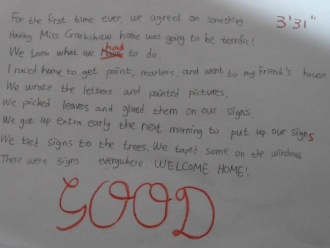 For the first time ever, we agreed on something. 3'31"
Having Miss Cronkshaw home was going to be terrific!
We knew what we had to do.
I raced home to get paint, markers, and went to my friend's house
We wrote the letters and painted pictures.
We picked leaves and glued them on our signs.
We got up extra early the next morning to put up our signs
We tied signs to the trees. We taped some on the windows
There were signs everywhere. WELCOME HOME!
GOOD